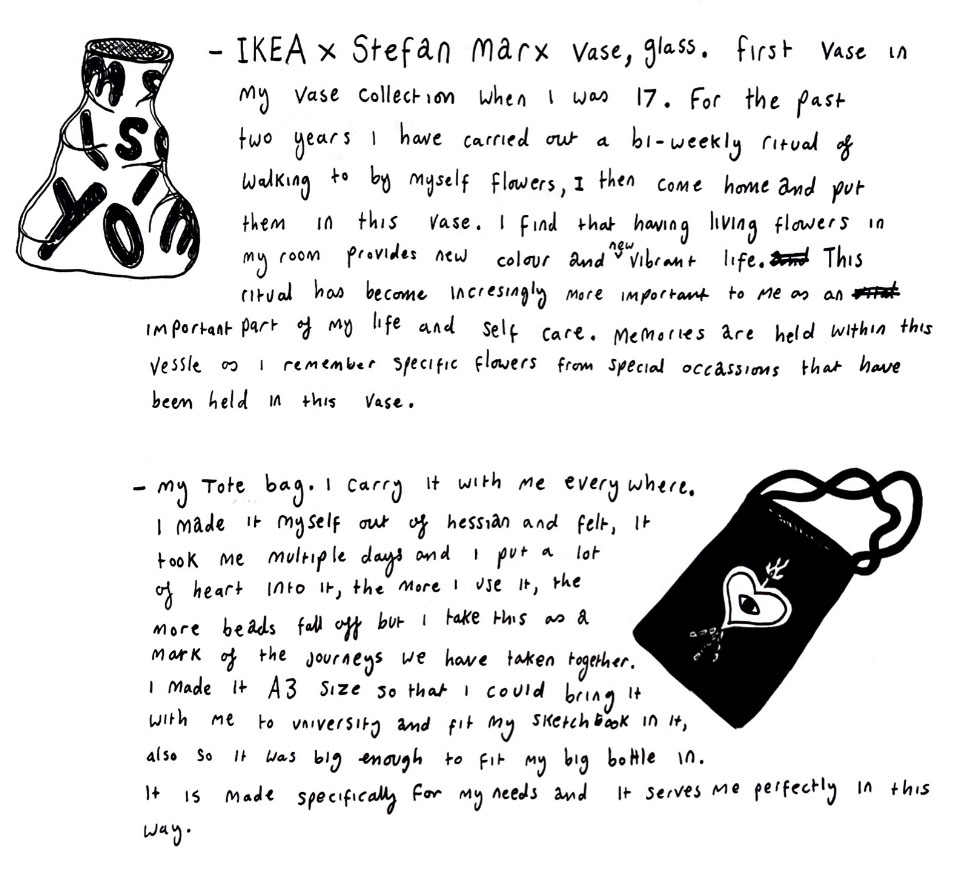 M S
I S
Y O M
- IKEA x Stefan Marx Vase, glass. First Vase in
my vase collection when I was 17. For the past
two years I have carried out a bi-weekly ritual of
walking to by myself flowers, I then come home and put
them in this vase. I find that having living flowers in
my room provides new colour and new vibrant life. and This
ritual has become incresingly more important to me as an
important part of my life and self care. Memories are held within this
vessle as I remember specific flowers from special occassions that have
been held in this vase.
- My Tote bag. I carry it with me everywhere.
I made it myself out of hessian and felt, it
took me multiple days and I put a lot
of heart into it, the more I use it, the
more beads fall off but I take this as a
mark of the journeys we have taken together.
I made it A3 size so that I could bring it
with me to university and fit my sketchbook in it,
also so it was big enough to fit my big bottle in.
It is made specifically for my needs and it serves me perfectly in this
way.